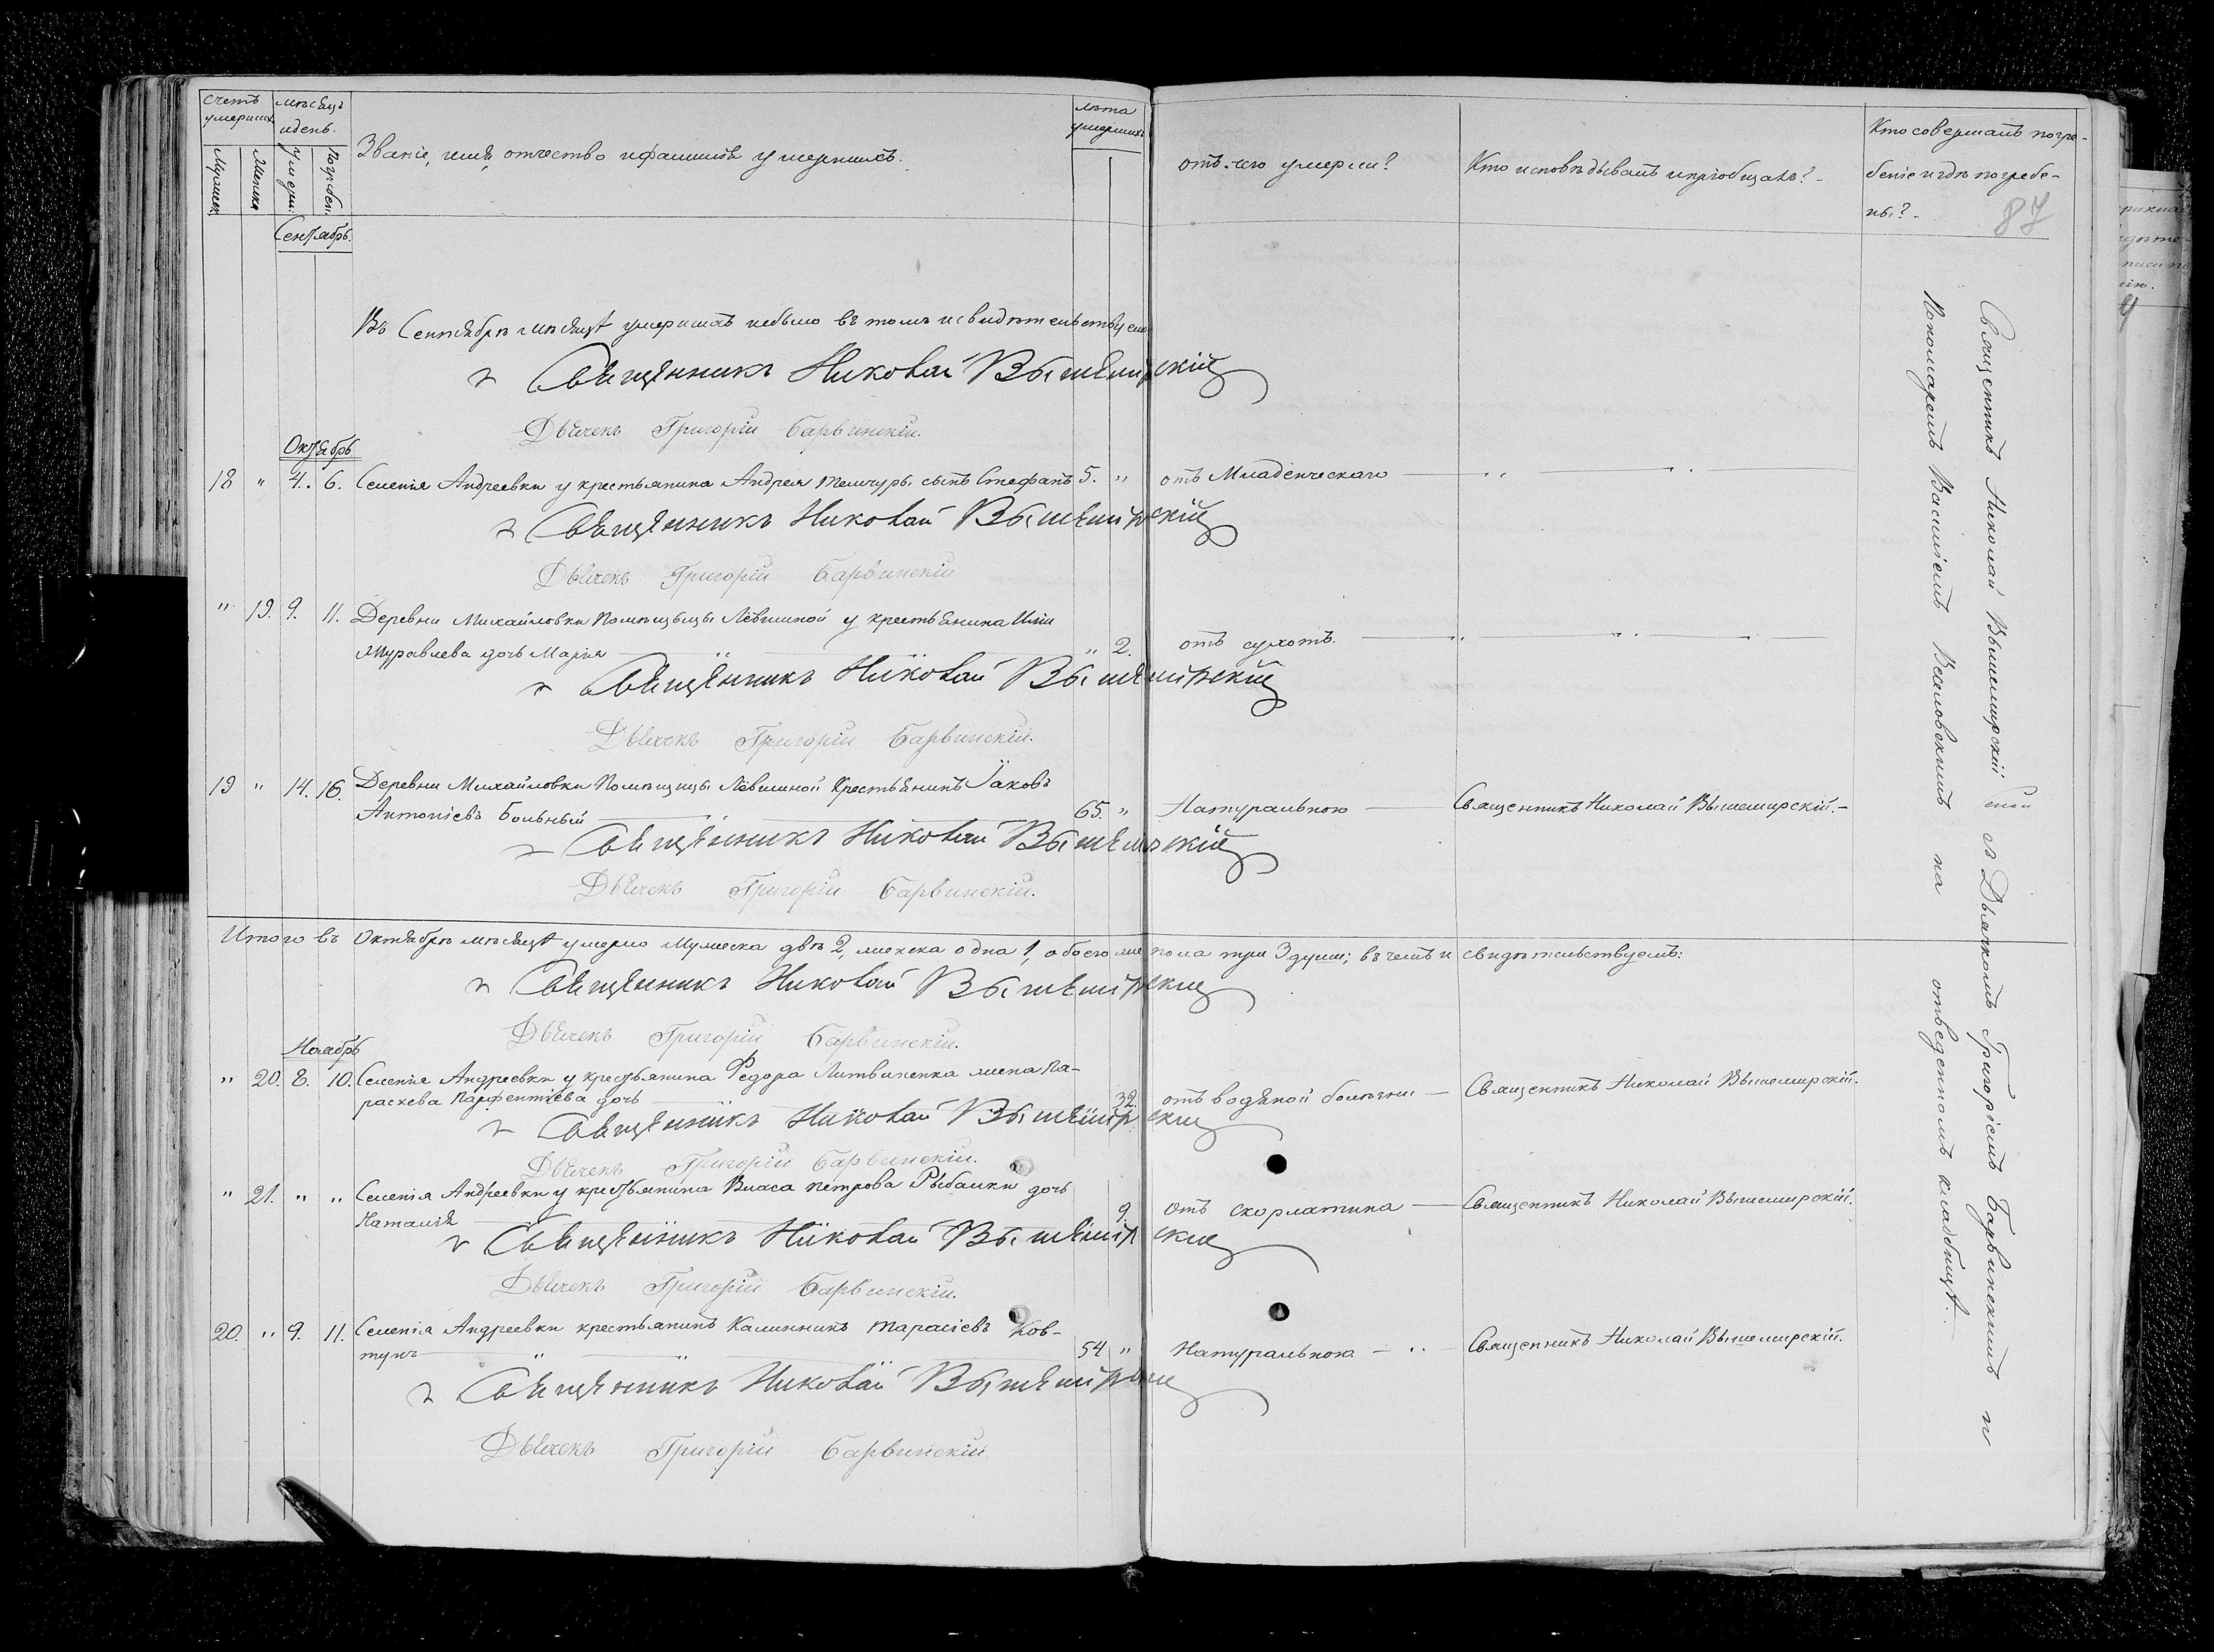 Счетъ умершихъ.
мѣсяцъ и день.
Званіе, имя, отчество и фамилія умершихъ.
лѣта умершихъ
отъ чего умерли?
Кто исповѣдывалъ и пріобщалъ? -
Кто совершалъ погре-
беніе и гдѣ погребе-
ны? -
87
Мужеска
Женска
умерш.
погребен.
Сентябрь.
Въ Сентябрѣ мѣсяцѣ умершихъ небыло въ томъ и свидѣтельствуемъ
Священникъ Николай Вышемирскій
Дьячекъ Григорій Барвинскій.
Октябрь
18 " 4. 6. Селенія Андреевки у крестьянина Андрея сынъ Стефанъ 5. " отъ Младенческаго
Священникъ Николай Вышемирскій
Дьячекъ Григорій Барвинскій
" 19. 9. 11. Деревни Михайловки Помѣщицы Лёвшиной у крестьянина Иліи
Журавлева дочь Марія " 2. отъ сухотъ.
Священникъ Николай Вышемирскій
Дьячекъ Григорій Барвинскій.
19 " 14. 16. Деревни Михайловки Помѣщицы Лёвшиной Крестьянинъ Іаковъ
Антоніевъ Больный 65. " Натуральною Священникъ Николай Вышемирскій. -
Священникъ Николай Вышемирскій
Дьячекъ Григорій Барвинскій.
Итого въ Октябрѣ мѣсяцѣ умерло Мужеска двѣ 2, женска одна 1, обоего же пола три 3 души; въ чемъ и свидѣтельствуемъ:
Священникъ Николай Вышемирскій
Дьячекъ Григорій Барвинскій.
Ноябрь
" 20. 8. 10. Селенія Андреевки у крестьянина Федора Литвиненка жена Па-
раскева Парфентіева дочь 32. отъ водяной болѣзни Священникъ Николай Вышемирскій.
Священникъ Николай Вышемирскій
Дьячекъ Григорій Барвинскій.
" 21. " " Селенія Андреевки у крестьянина Власа Петрова Рыбалки дочь
Наталія 9. отъ скорлатина Священникъ Николай Вышемирскій.
Священникъ Николай Вышемирскій
Дьячекъ Григорій Барвинскій.
20. " 9. 11. Селенія Андреевки крестьянинъ Калинникъ Тарасіевъ Ков-
тунъ 54 " Натуральною Священникъ Николай Вышемирскій.
Священникъ Николай Вышемирскій
Дьячекъ Григорій Барвинскій
Священникъ Николай Вышемирскій съ Дьячкомъ Григоріемъ Барвинскимъ и
Пономаремъ Василіемъ на отведенномъ кладбищѣ.